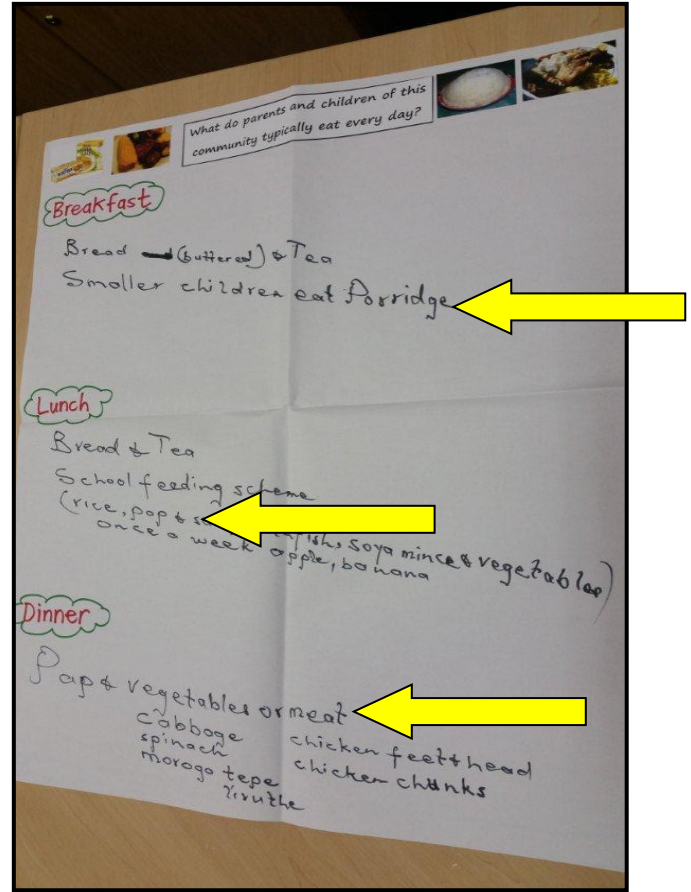 What do parents and children of this
community typically eat every day?
Breakfast
Bread (buttered) & Tea
Smaller children eat Porridge
Lunch
Bread & Tea
School feeding scheme
(rice, pap & fish, soya mince & vegetables)
once a week apple, banana
Dinner
Pap & vegetables or meat
cabbage chicken feet & head
spinach chicken chunks
morogo tepe